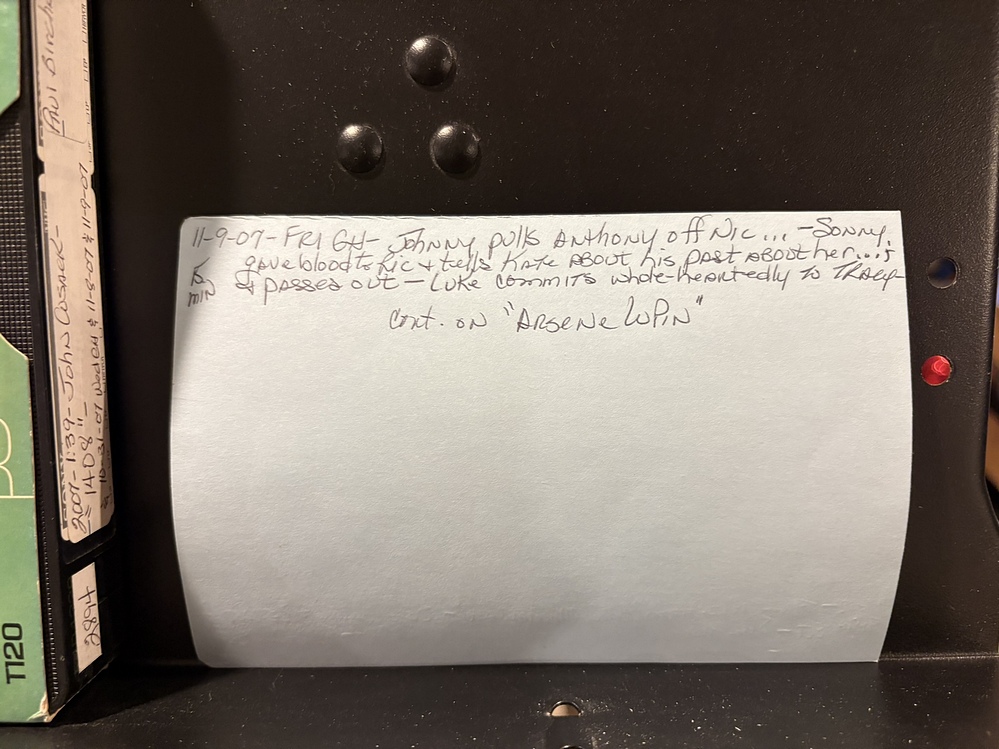 11-9-07-FRI GH- Johnny pulls Anthony off Nic... -Sonny,
gave blood to Ric & tells Kate about his past about her...;
15 min
& passes out - Luke commits whole-heartedly to Tracy-
Cont. on "Arsene Lupin"
Paul
2007-1:39-John Cusack-
= "1408" -
10-31-07 Wed GH & 11-8-07 & 11-9-07
2894
T120